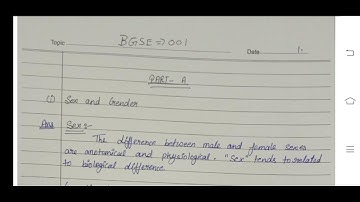 Topic BGSE => 001
Date 1.
PART - A
(1) Sex and Gender
Ans Sex :-
The difference between male and female sexes
are anatomical and physiological. "Sex" tends to related
to biological difference.